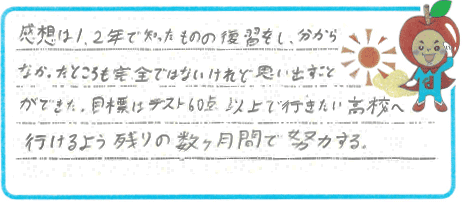 感想は1、2年で知ったものの復習をし、分から
なかったところも完全ではないけれど思い出すこと
ができた。目標はテスト60点以上で行きたい高校へ
行けるよう残りの数ヶ月間で努力する。